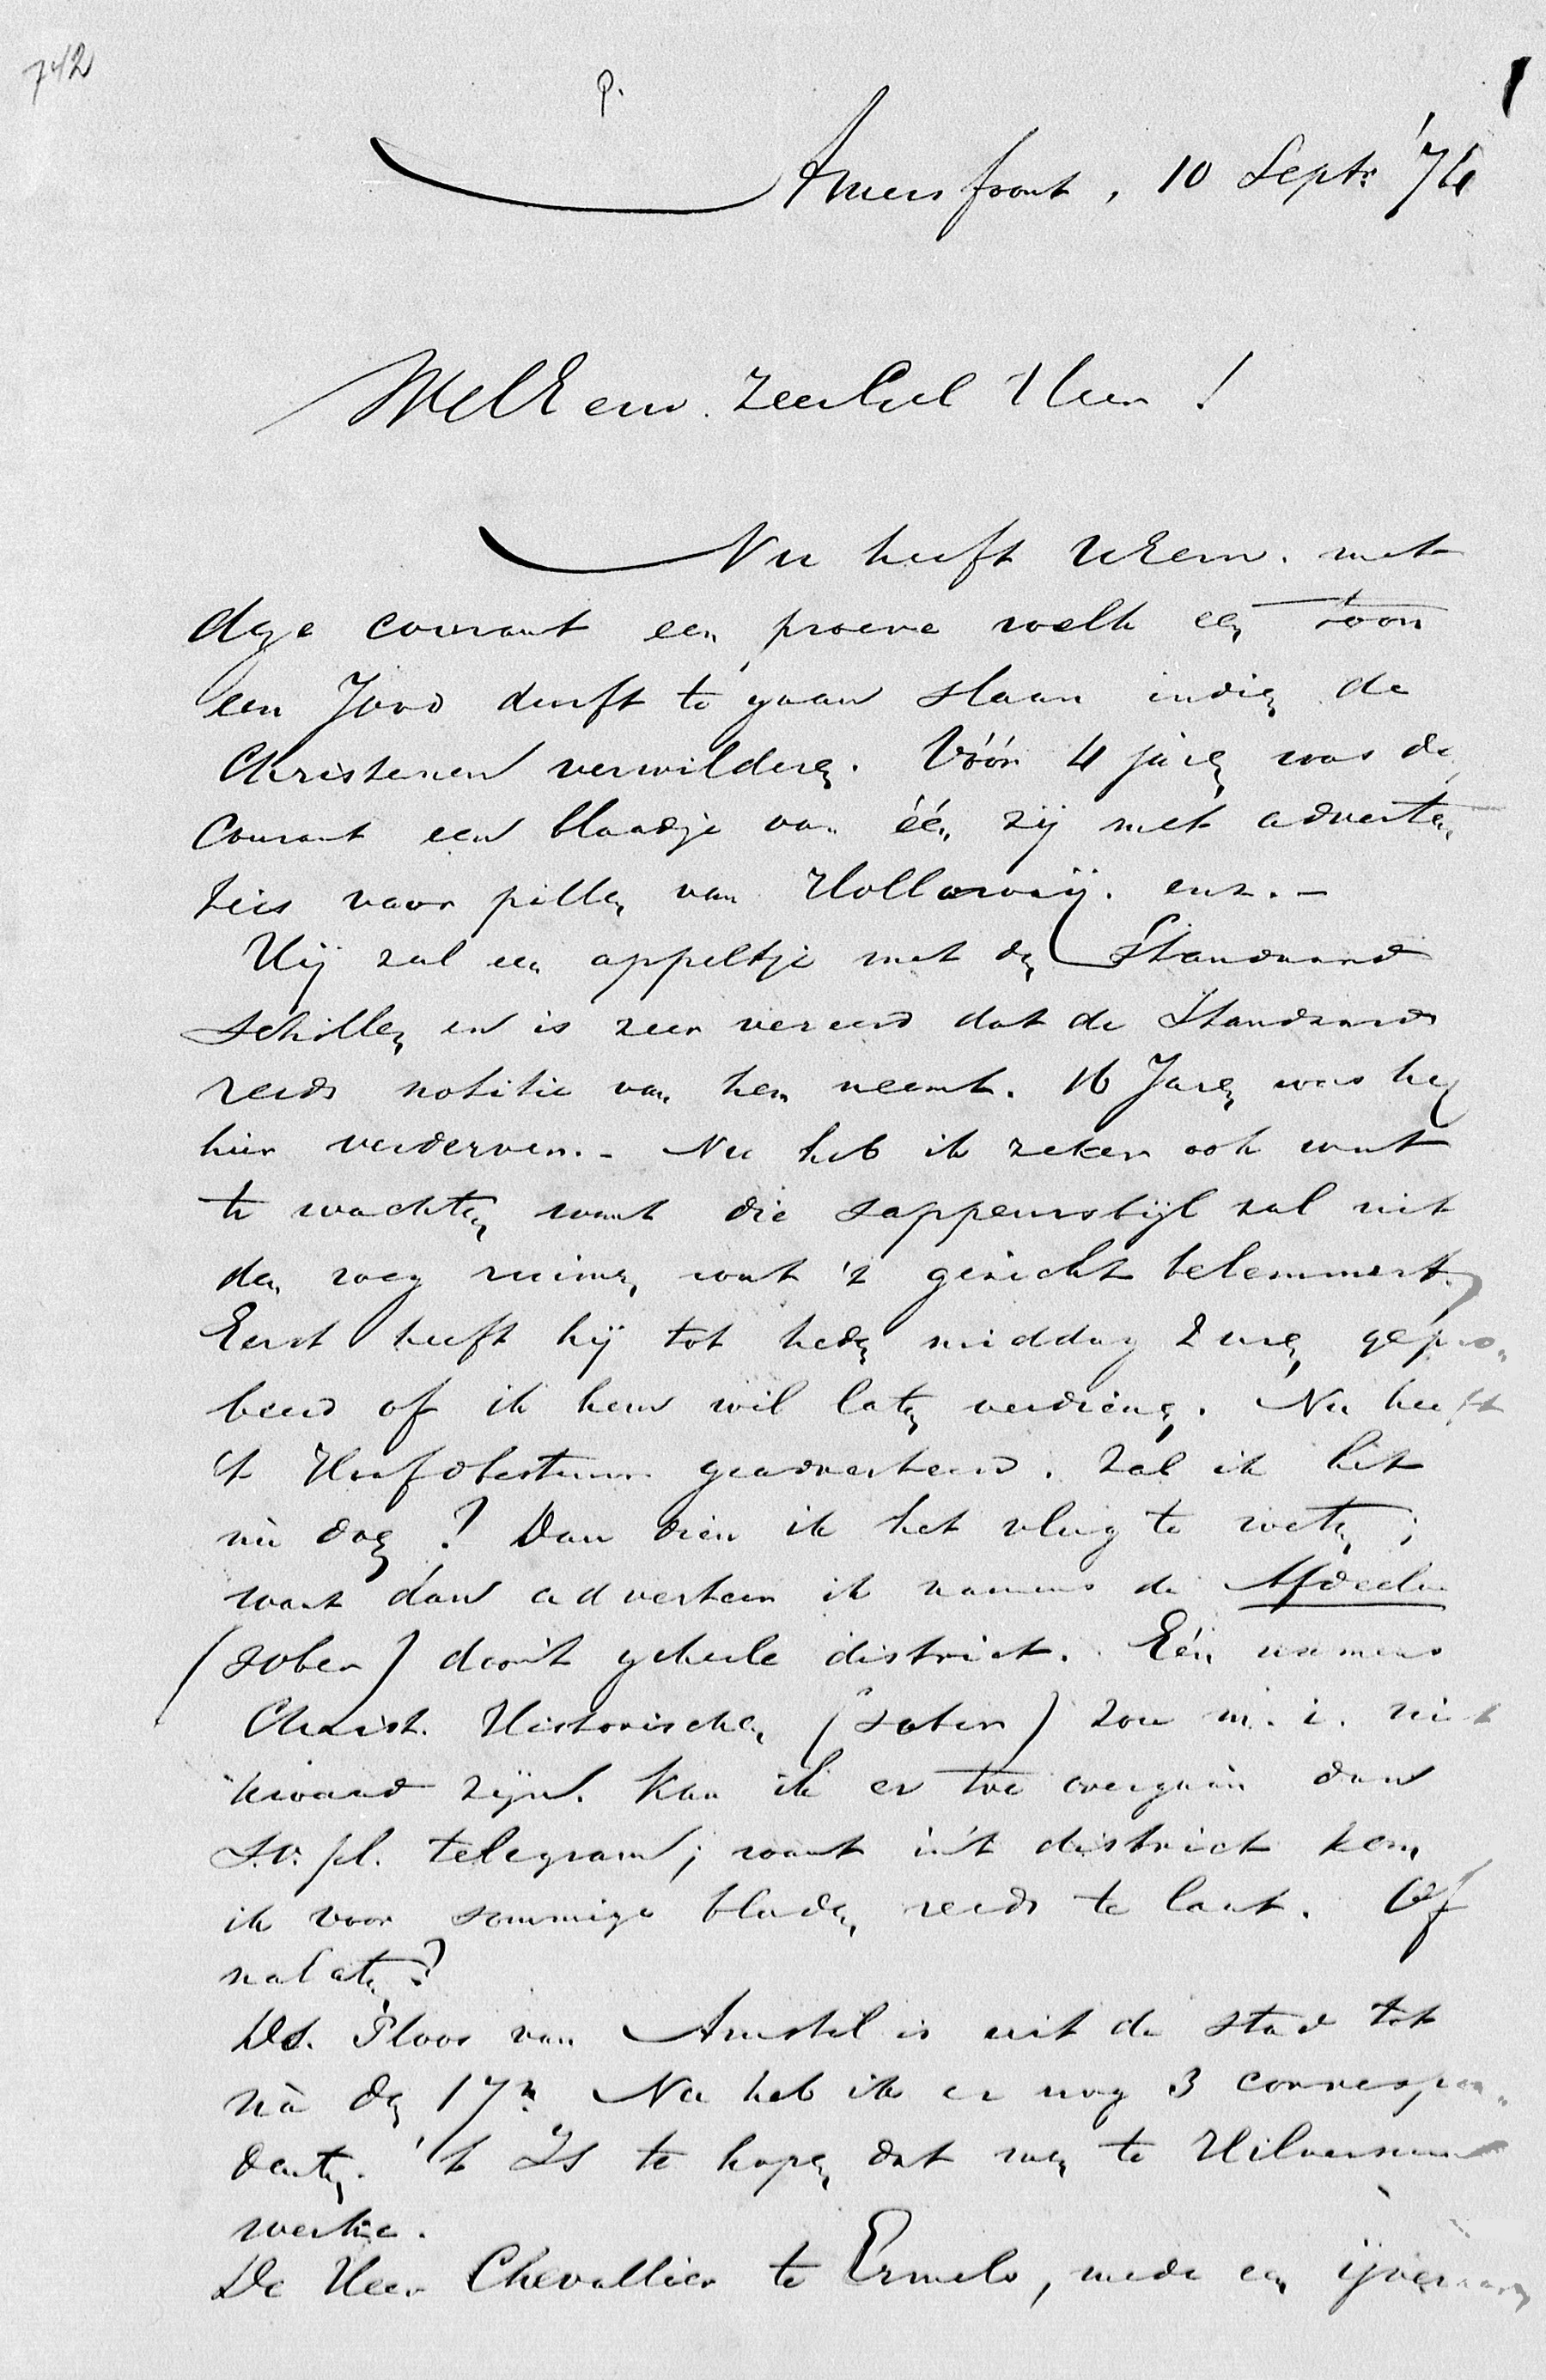 742
p.
Amersfoort, 10 Septr '74
WelEerw. ZeerGel Heer!
Nu heeft UEerw. met
deze courant een proeve welk een toon
een Jood durft te gaan slaan indien de
Christenen verwilderen. Vóór 4 jaren was de
Courant een blaadje van één zij met adverten
ties voor pillen van Holloway. enz. -
Hij zal een appeltje met den Standaard
schillen en is zeer vereerd dat de Standaard
reeds notitie van hem neemt. 16 Jaren was hij
hier verderver. - Nu heb ik zeker ook wat
te wachten want die sappeursbijl zal uit
den weg ruimen wat 't gezicht belemmert.
Eerst heeft hij tot heden middag 2 uren gepro-
beerd of ik hem wil laten verdienen. Nu heeft
't Hoofdbestuur geadverteerd. Zal ik het
nu doen? Dan dien ik het vlug te weten;
want dan adverteer ik namens de Afdeeling
(sober) door't geheele district. Eén namens
Christ. Historischen (sober) zou m. i. niet
kwaad zijn. Kan ik er toe overgaan dan
s.v.pl. telegram; want in't district kom
ik voor sommige bladen reeds te laat. Of
nalaten?
Ds. Ploos van Amstel is uit de stad tot
na den 17n. Nu heb ik er nog 3 correspon-
denten. 't Is te hopen dat men te Hilversum
werke.
De Heer Chevallier te Ermelo, mede een